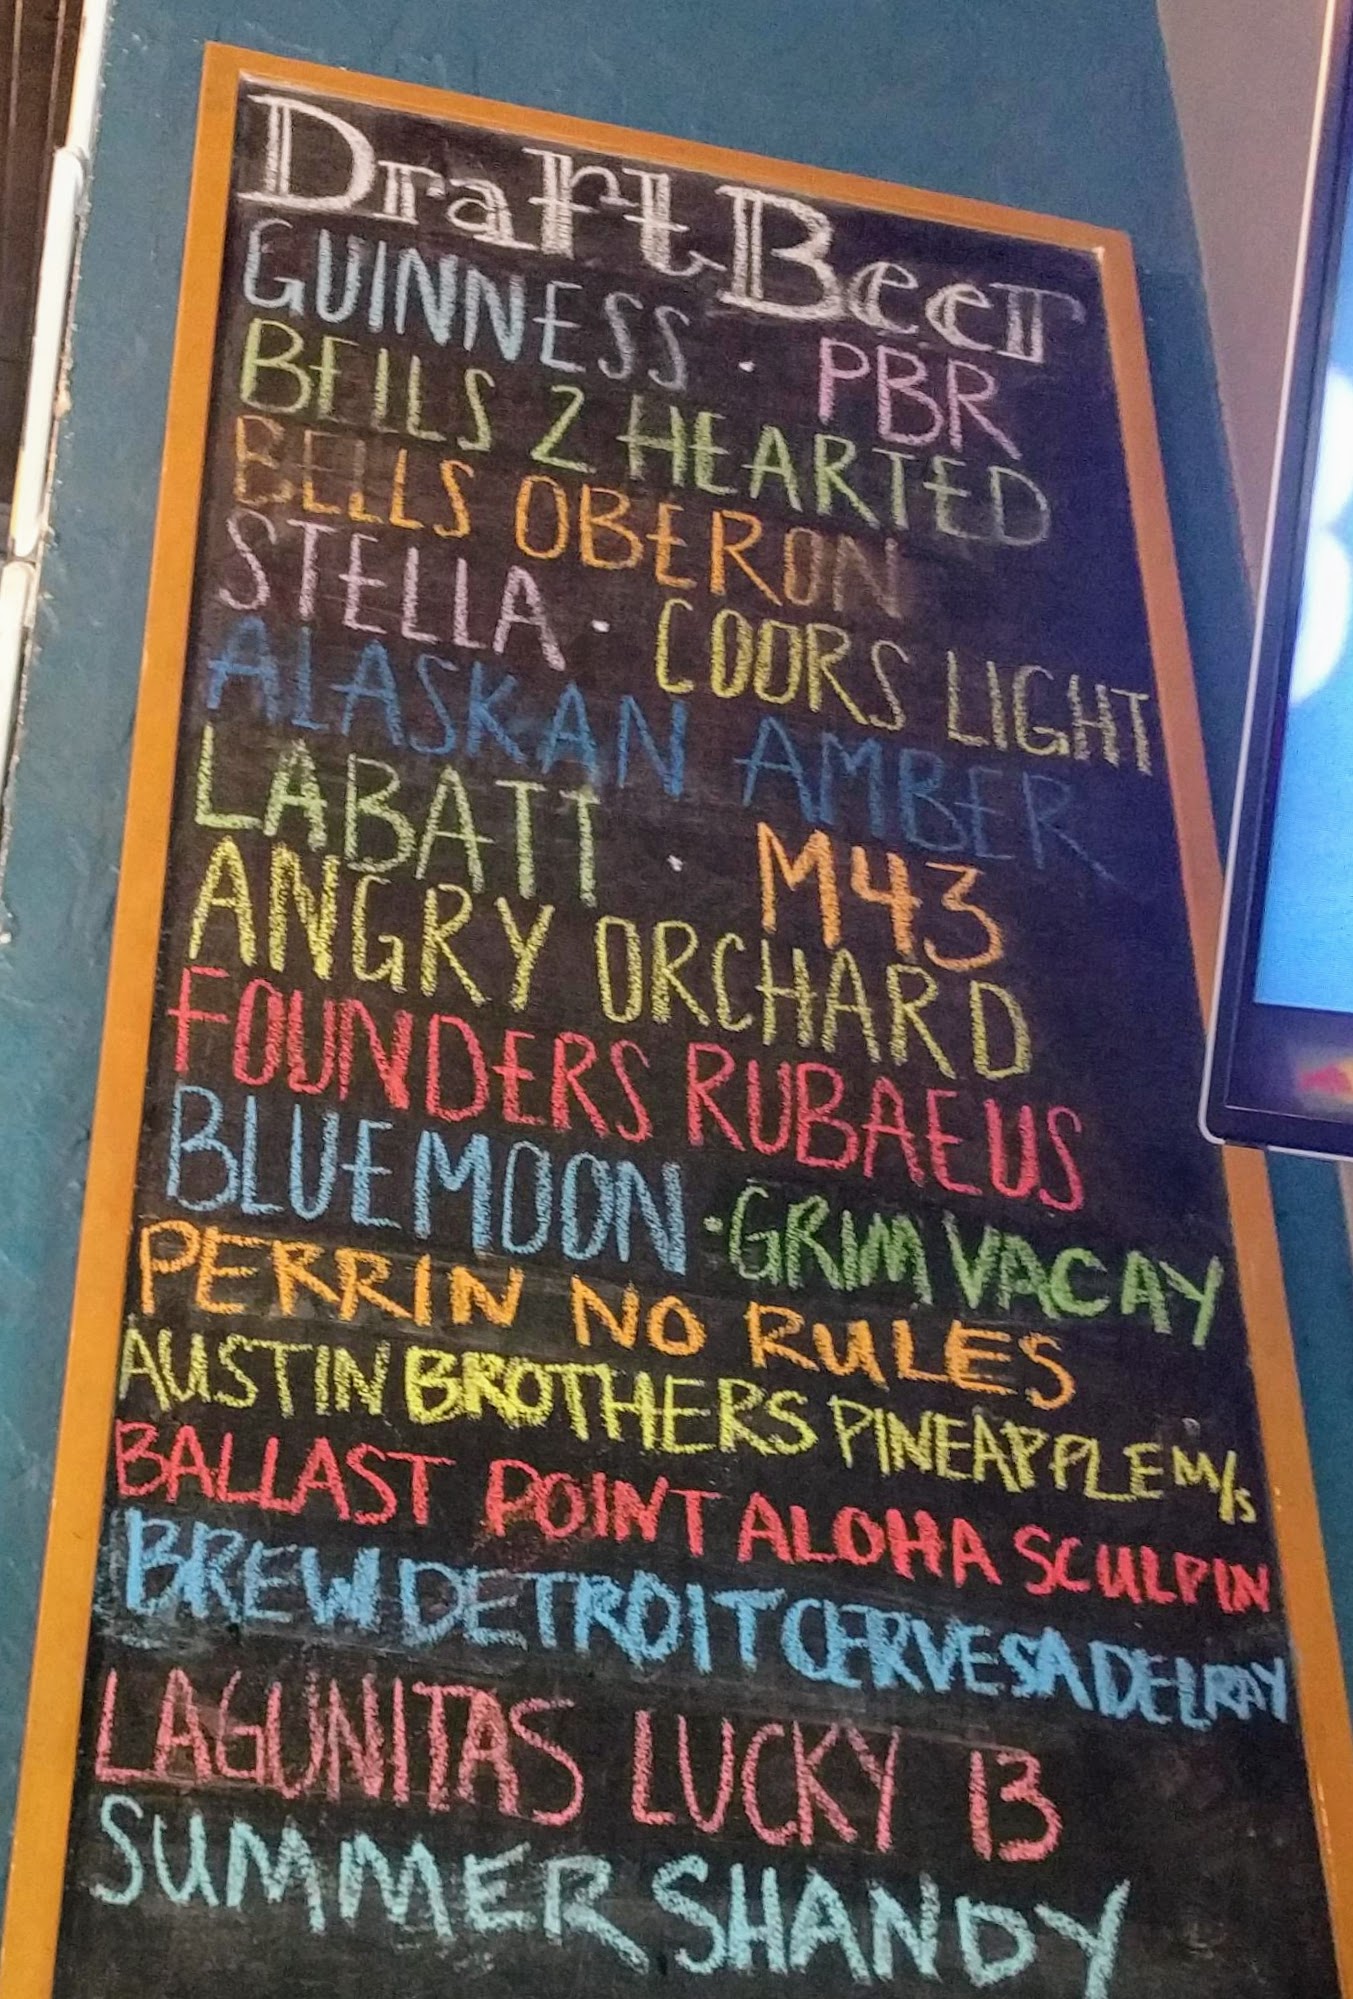 Draft Beer
GUINNESS · PBR
BELLS 2 HEARTED
BELLS OBERON
STELLA · COORS LIGHT
ALASKAN AMBER
LABATT · M43
ANGRY ORCHARD
FOUNDERS RUBAEUS
BLUEMOON · GRIM VACAY
PERRIN NO RULES
AUSTIN BROTHERS PINEAPPLE M/S
BALLAST POINT ALOHA SCULPIN
BREW DETROIT CERVESA DELRAY
LAGUNITAS LUCKY 13
SUMMER SHANDY